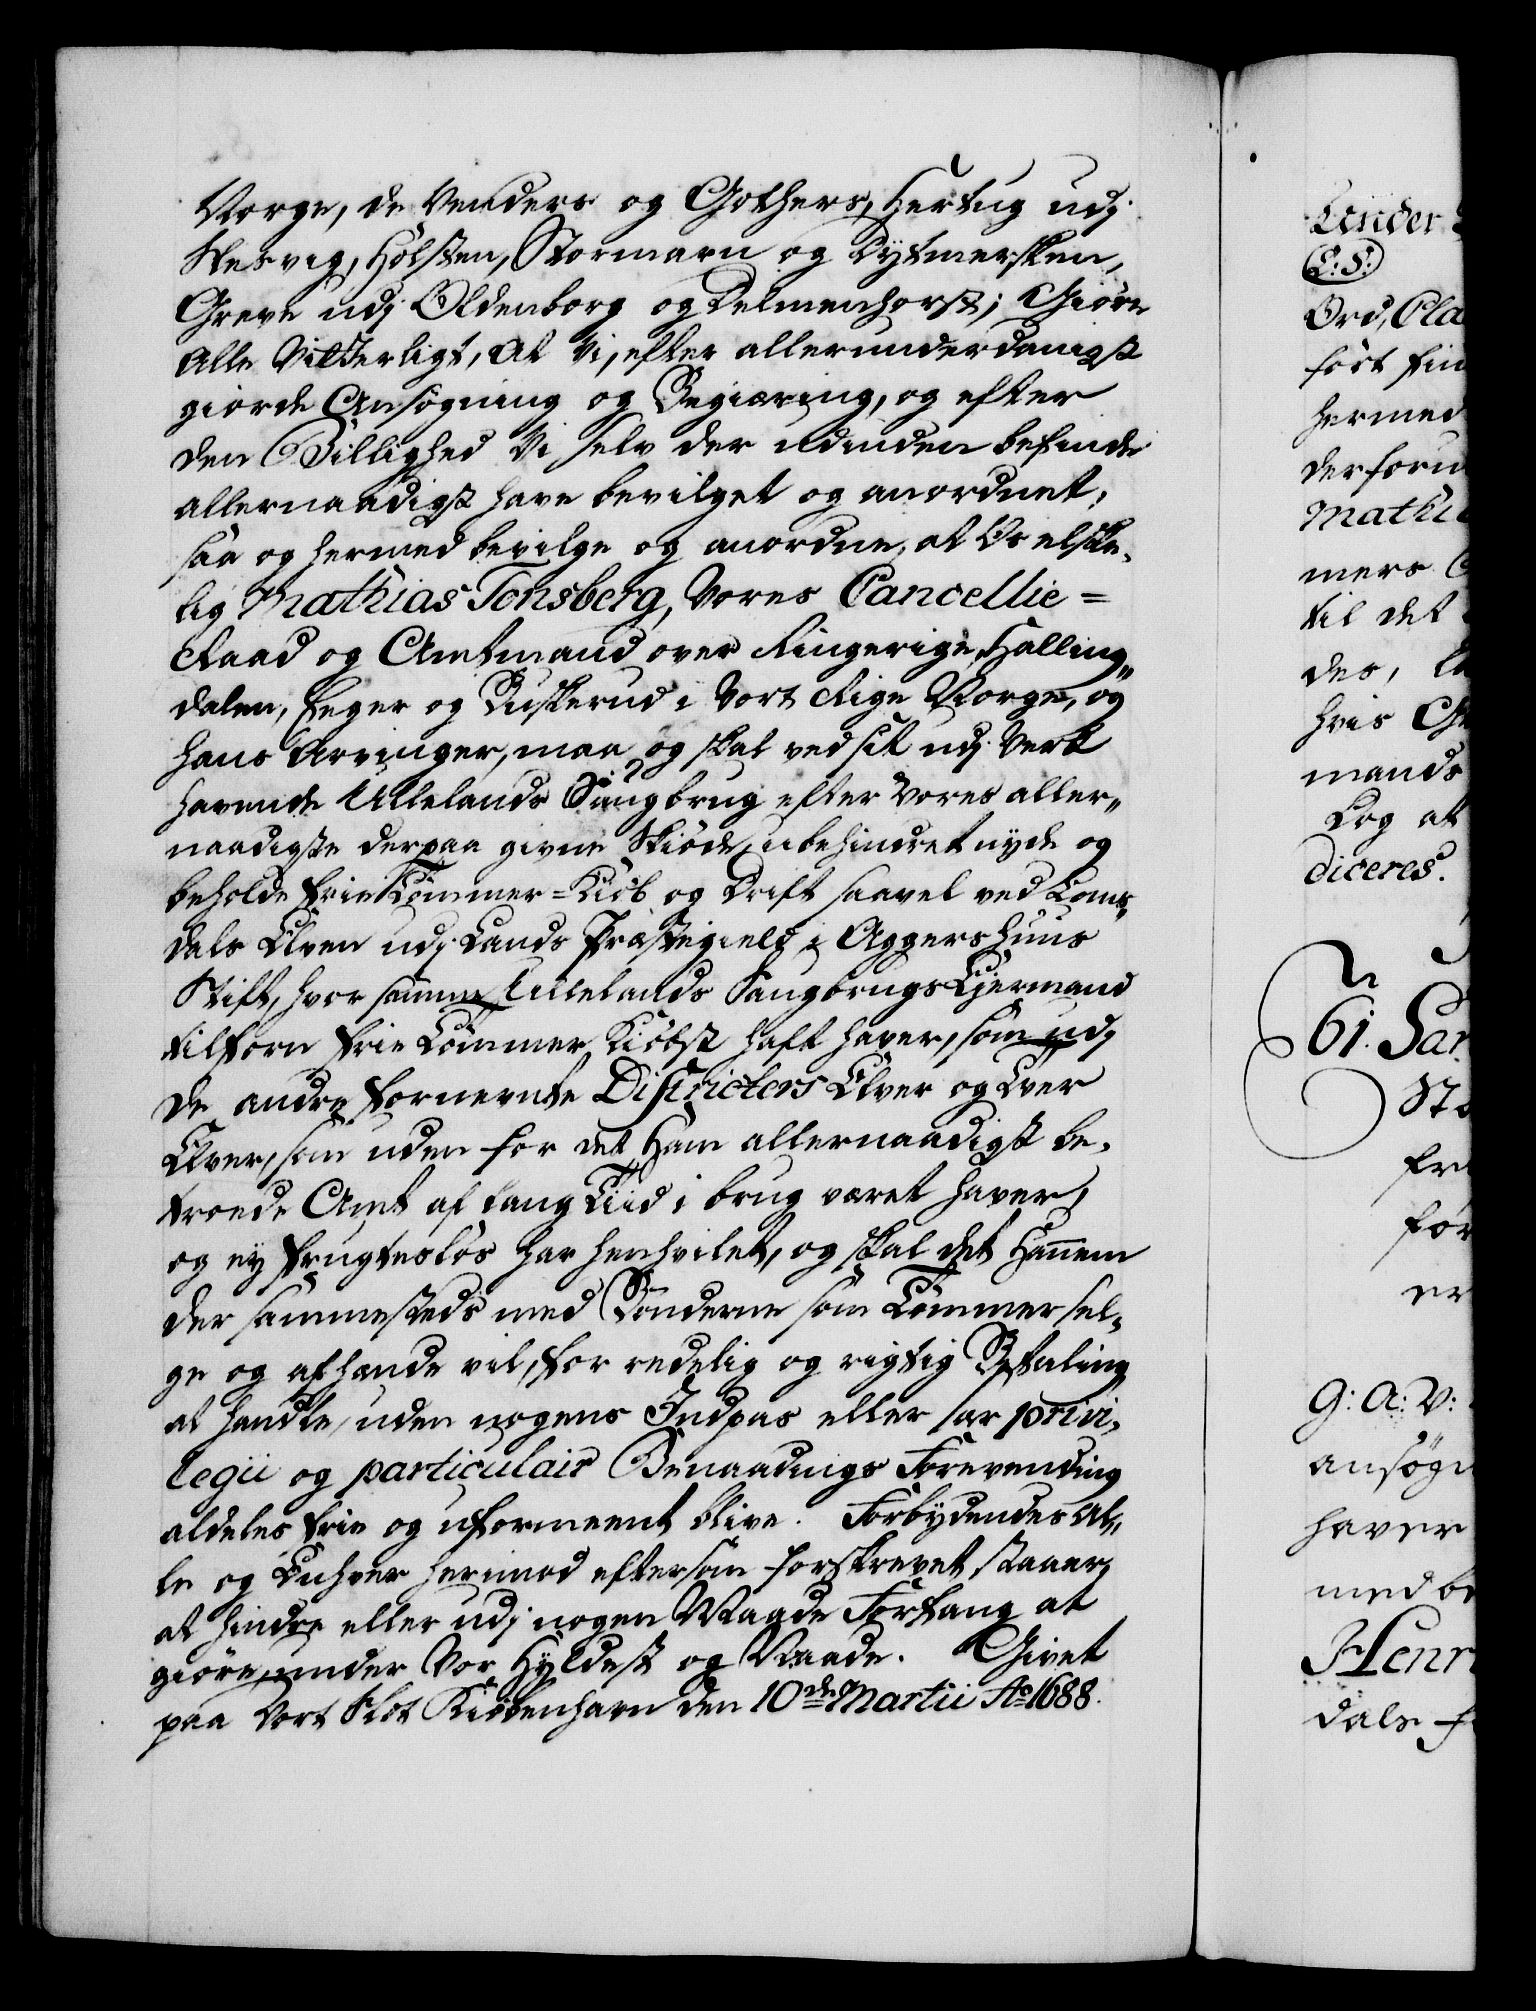 Norge, de Venders og Gothers, Hertug udj
Slesvig, Holsten, Stormarn og Dytmersken,
Greve udj Oldenborg og Delmenhorst; Giøre
Alle Vitterligt, At Vi, efter allerunderdanigst
giorde Ansøgning og Begiæring, og efter
den Billighed Vi selv der udinden befinde
allernaadigst have bevilget og anordnet,
saa og hermed bevilge og anordne, at Os elske,
lig Mathias Tonsberg, Vores Cancellie=
Raad og Amtmand over Ringerige, Halling„
dalen, Eeger og Buskerud i Vort Rige Norge, og
hans Arvinger, maa og skal ved sit udj Verk
havende Ullelands Saugbrug efter Vores aller„
naadigste derpaa givne Skiøde, ubehindret nyde og
beholde frie Tømmer=Kiøb og Drift saavel ved Loms„
dals Elven udj Lands Præstegield i Aggershuus
Stift, hvor samme Ullelands Saugbrugs Ejermand
tilforn frie Tømmer Kiøbst haft haver, som udj
de andre fornevnte Districters Elver og Tver
Elver, som uden for det Ham allernaadigst be,
troede Amt af lang Tiid i brug været haver,
og ey frugtesløs har henhvilet, og skal det Hannem
der sammesteds med Bønderne som Tømmer sel„
ge og afhænde vil, for redelig og rigtig Betaling
at handle, uden nogens Indpas eller sær privi,
legii og particulair Benaadnings Forevending
aldeles frie og uformeent blive. Forbydendes Al„
le og Enhver herimod eftersom forskrevet staaer,
at hindre eller udj nogen Maade Forfang at
giøre, under Vor Hyldest og Naade. Givet
paa Vort Slot Kiøbenhavn den 10de Martii Ao 1688.
Under
L: S:
Ord, Cla
ført fin
hermed
derforu
Mathi
mers
til det
des,
hvis
mands
Log at
diceres.
61. Sar
fre
for
er
G: A: V:
ansøgn
haver
med be
Henri
dals